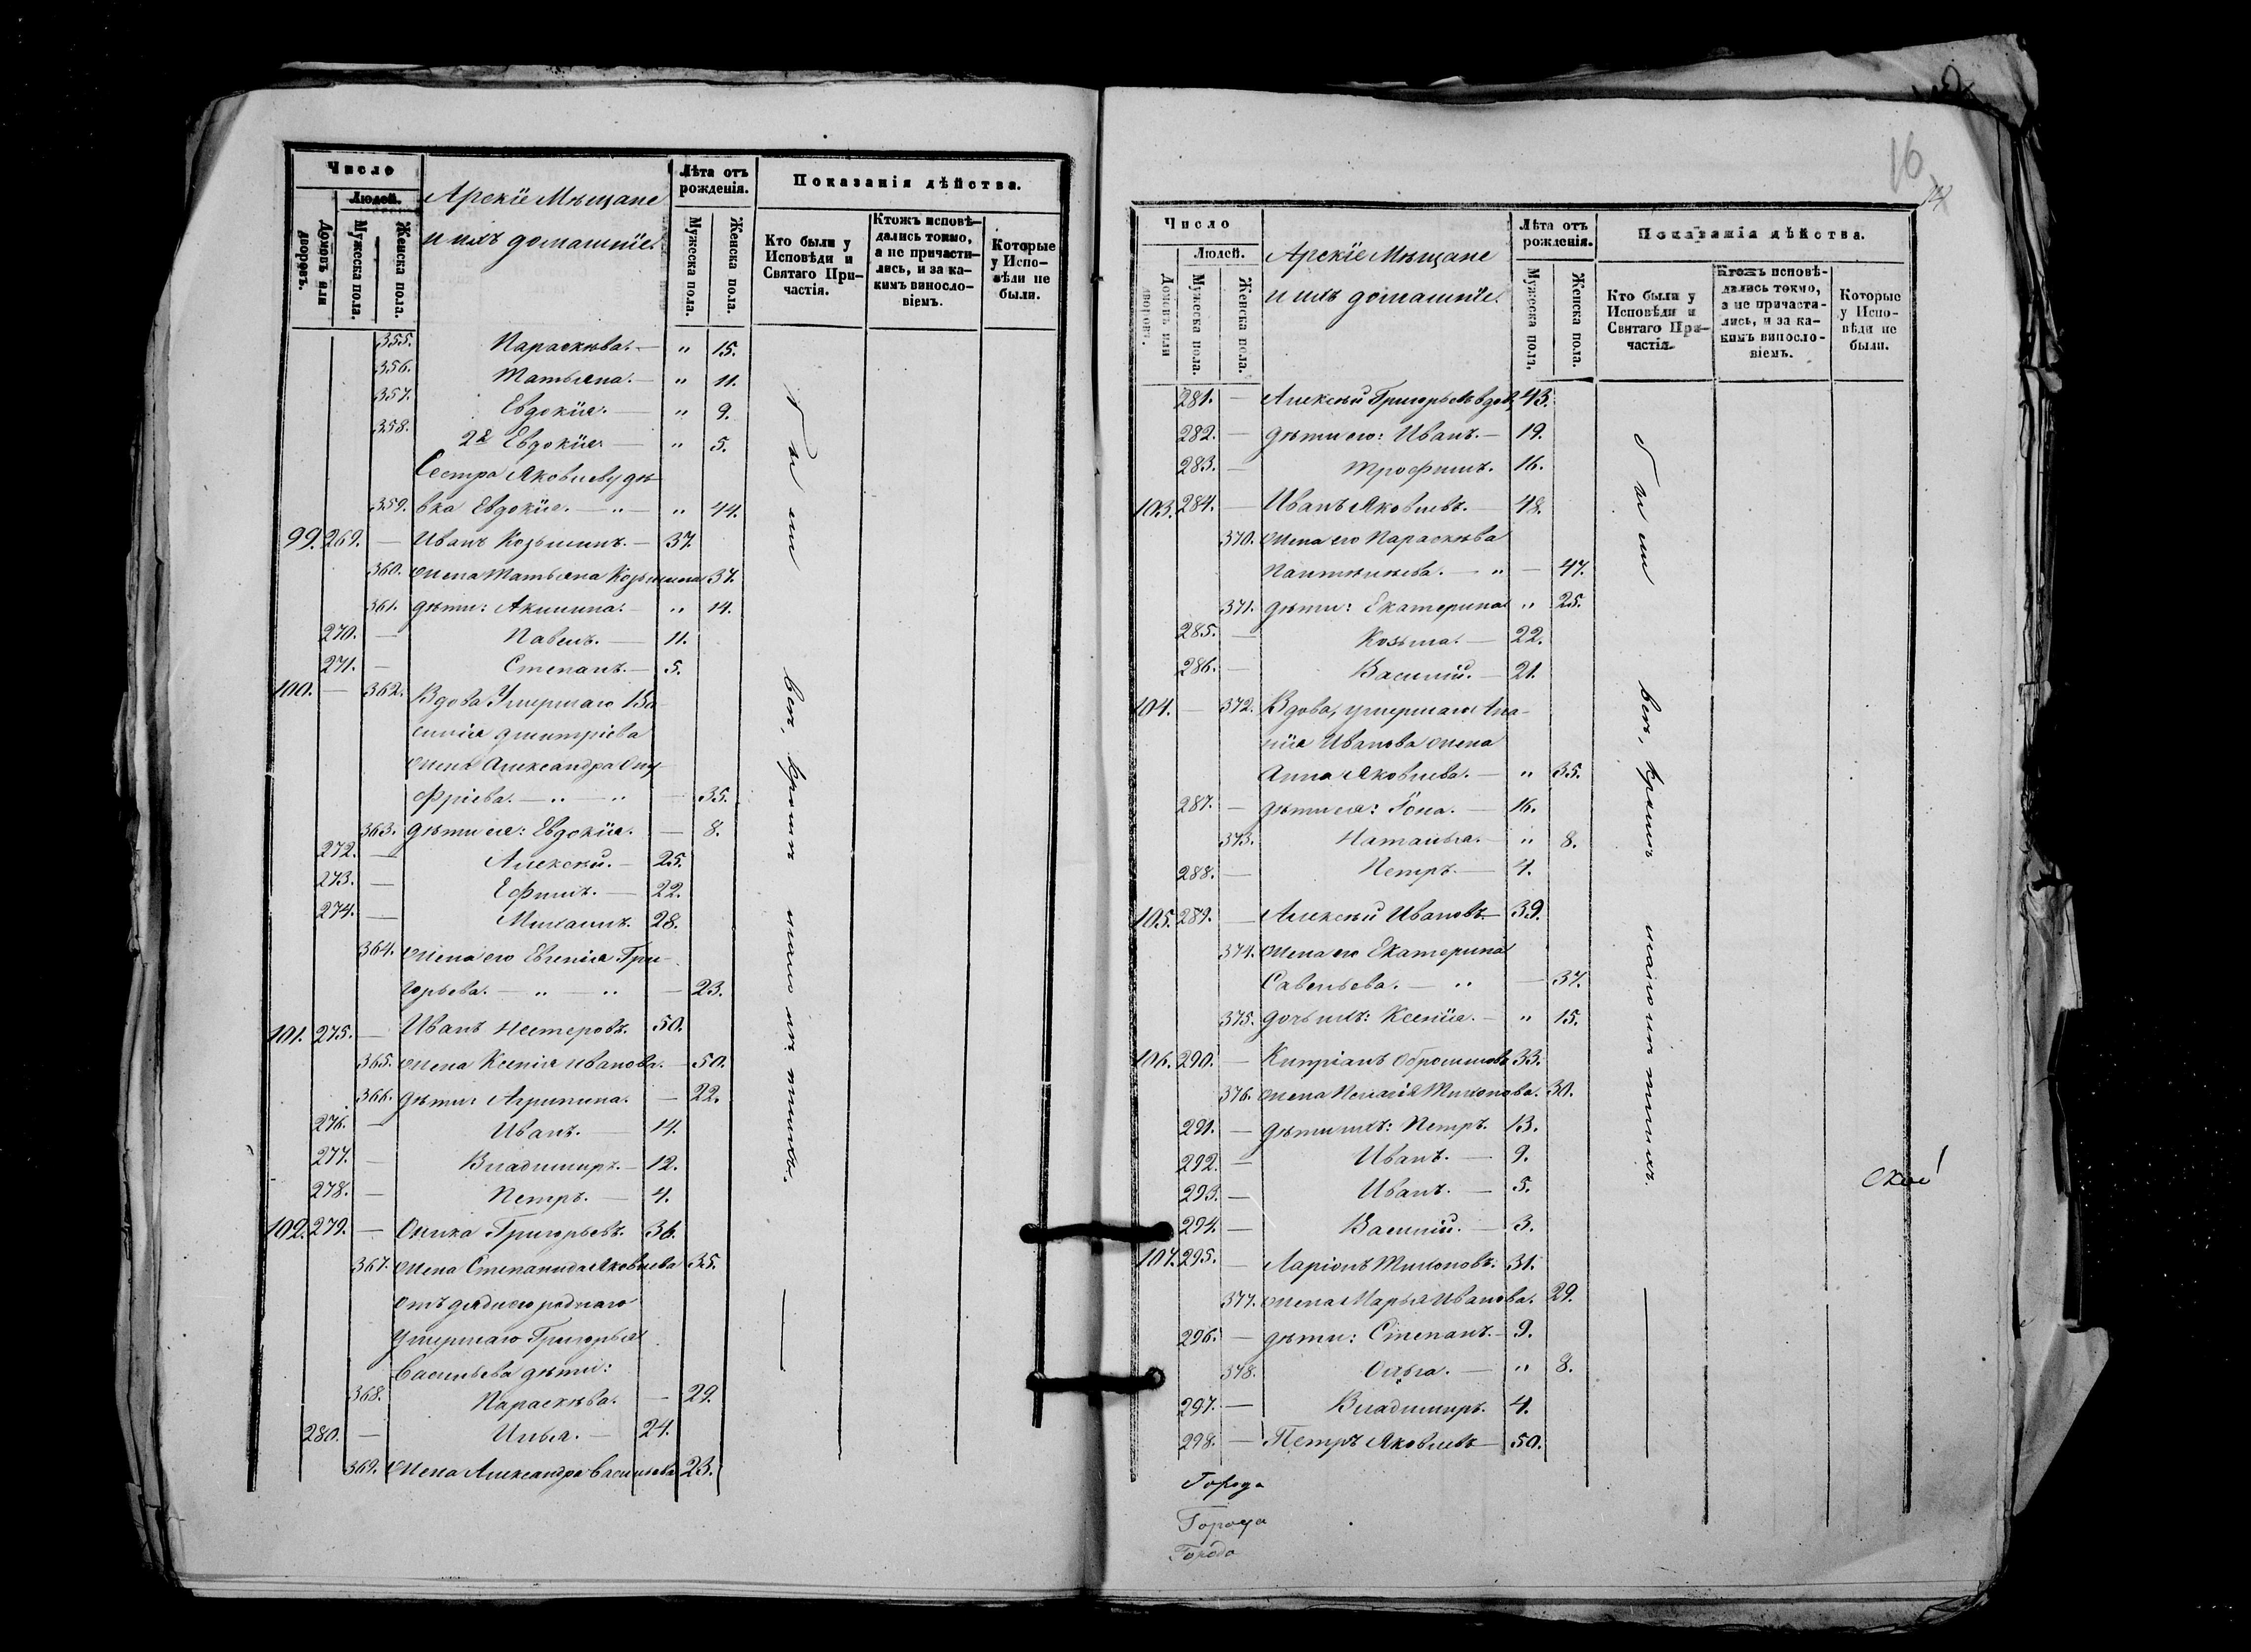 Число
Людей.
Домовъ или дворовъ.
Мужеска пола.
Женска пола.
Арскіе Мѣщане
и ихъ домашніе.
Лѣта отъ рожденія.
Мужеска пола.
Женска пола.
Показанія дѣйства.
Кто были у Исповѣди и Святаго Причастія.
Ктожъ исповѣдались токмо, а не причастились, и за какимъ винословіемъ.
Которые у Исповѣди не были.
355. Параскѣва. — " 15.
356. Татьяна. — " 11.
357. Евдокія. — " 9.
358. 2я Евдокія — " 5.
Сестра Яковлеву дѣ-
359. вка Евдокія. — " — " 44.
99. 269. — Иванъ Козьминъ. — 37.
360. жена Татьяна Козьмина 37.
361. дѣти: Акилина. — " 14.
270. — Павелъ. — 11.
271. — Степанъ. — 5.
100. — 362. Вдова Умершаго Ва-
силія Дмитріева
жена Александра Ону-
фріева. — " — " — 35.
363. дѣти ея: Евдокія. — 8.
272. — Алексѣй. — 25.
273. — Ефимъ. — 22.
274. — Михаилъ. 28.
364. жена его Евгенія Гри-
горьева. — " — " — 23.
101. 275. — Иванъ Нестеровъ. 50.
365. жена Ксенія Иванова. — 50.
366. дѣти: Агрипина. — 22.
276. — Иванъ. — 14.
277. — Владимиръ. — 12.
278. — Петръ. — 4.
102. 279. — Оника Григорьевъ. 36.
367. жена Степанида Яковлева 35.
Отъ дяди его роднаго
Умершаго Григорья
Васильева дѣти:
368. Параскѣва. — 29.
280. — Илья. — 24.
369. жена Александра Васильева 23.
были всѣ, кромѣ малолѣтнихъ.
16
Число
Людей.
Домовъ или дворовъ.
Мужеска пола.
Женска пола.
Арскіе Мѣщане
и ихъ домашніе.
Лѣта отъ рожденія.
Мужеска пола.
Женска пола.
Показанія дѣйства.
Кто были у Исповѣди и Святаго Причастія.
Ктожъ исповѣдались токмо, а не причастились, и за какимъ винословіемъ.
Которые у Исповѣди не были.
281. — Алексѣй Григорьевъ вдов. 43.
282. — дѣти его: Иванъ. — 19.
283. — Трофимъ. 16.
103. 284. — Иванъ Яковлевъ. — 48.
370. жена его Параскѣва
Пантелѣева. — " — 47.
371. дѣти: Екатерина " 25.
285. — Козьма. — 22.
286. — Василій. — 21.
104. — 372. Вдова, умершаго Ана-
нія Иванова жена
Анна Яковлева. — " 35.
287. — дѣти ея: Іона. — 16.
373. Наталья. — " 8.
288. — Петръ. — 4.
105. 289. — Алексѣй Ивановъ — 39.
374. жена его Екатерина
Савельева. — " — 37.
375. дочь ихъ: Ксенія. — " 15.
106. 290. — Кипріанъ Обросимовъ 33.
376. жена Пелагія Тихонова. 30.
291. — дѣти ихъ: Петръ. 13.
292. — Иванъ. — 9.
293. — Иванъ. — 5.
294. — Василій. — 3.
107. 295. — Ларіонъ Тихоновъ. 31.
377. жена Марья Иванова. 29.
296. — дѣти: Степанъ. — 9.
378. Ольга. — " 8.
297. — Владимиръ. 4.
298. — Петръ Яковлевъ — 50.
были всѣ, кромѣ малолѣтнихъ.
Города
Города
Города